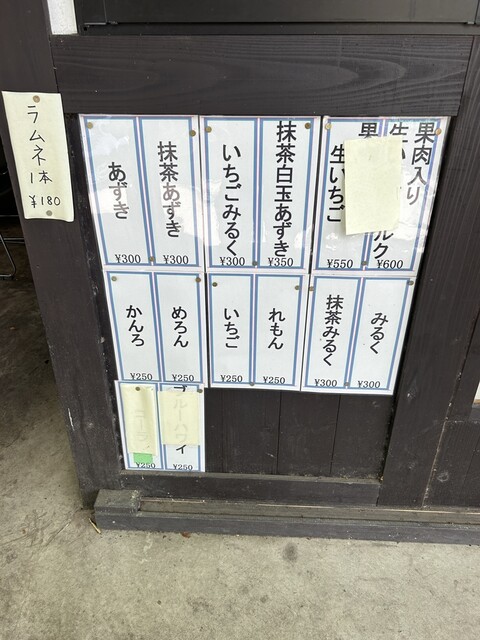 ラムネ
1本
¥180
果肉入り
生い
ルク
¥600
果
生いちご
¥550
抹茶白玉あずき
¥350
いちごみるく
¥300
抹茶あずき
¥300
あずき
¥300
みるく
¥300
抹茶みるく
¥300
れもん
¥250
いちご
¥250
めろん
¥250
かんろ
¥250
ブルーハワイ
¥250
¥250